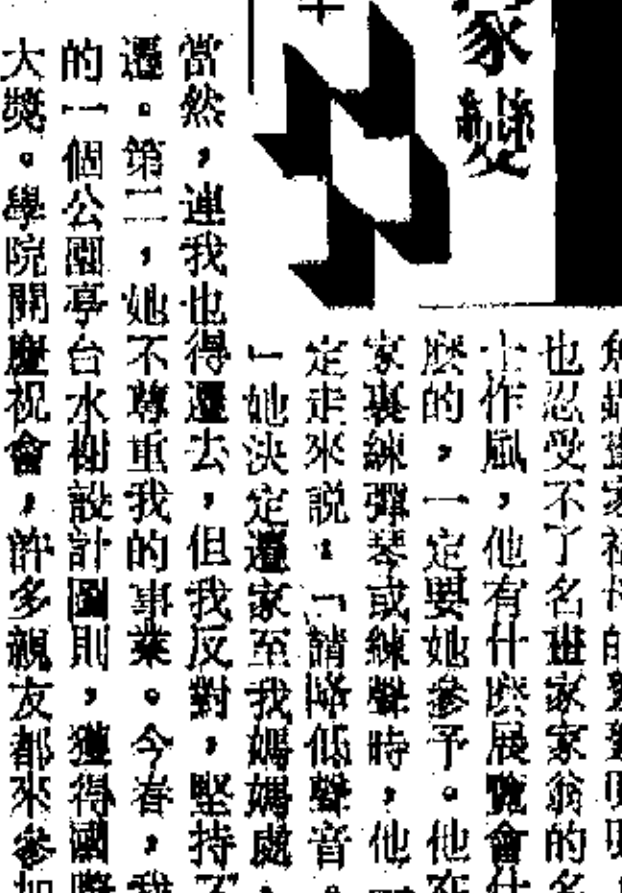 家變
也忍受不了名建家家翁的名
士作風，他有什麽展覽會什
麽的，一定要她參予。他在
家裏練彈琴或練聲時，他一
定走來説：「請略低聲音。
」她決定遷家至我媽媽處，
當然，連我也得遷去，但我反對，堅持不
遷。第二，她不尊重我的事業。今春，我
的一個公園亭台水榭設計圖則，獲得國際
大獎。學院開慶祝會，許多親友都來參加